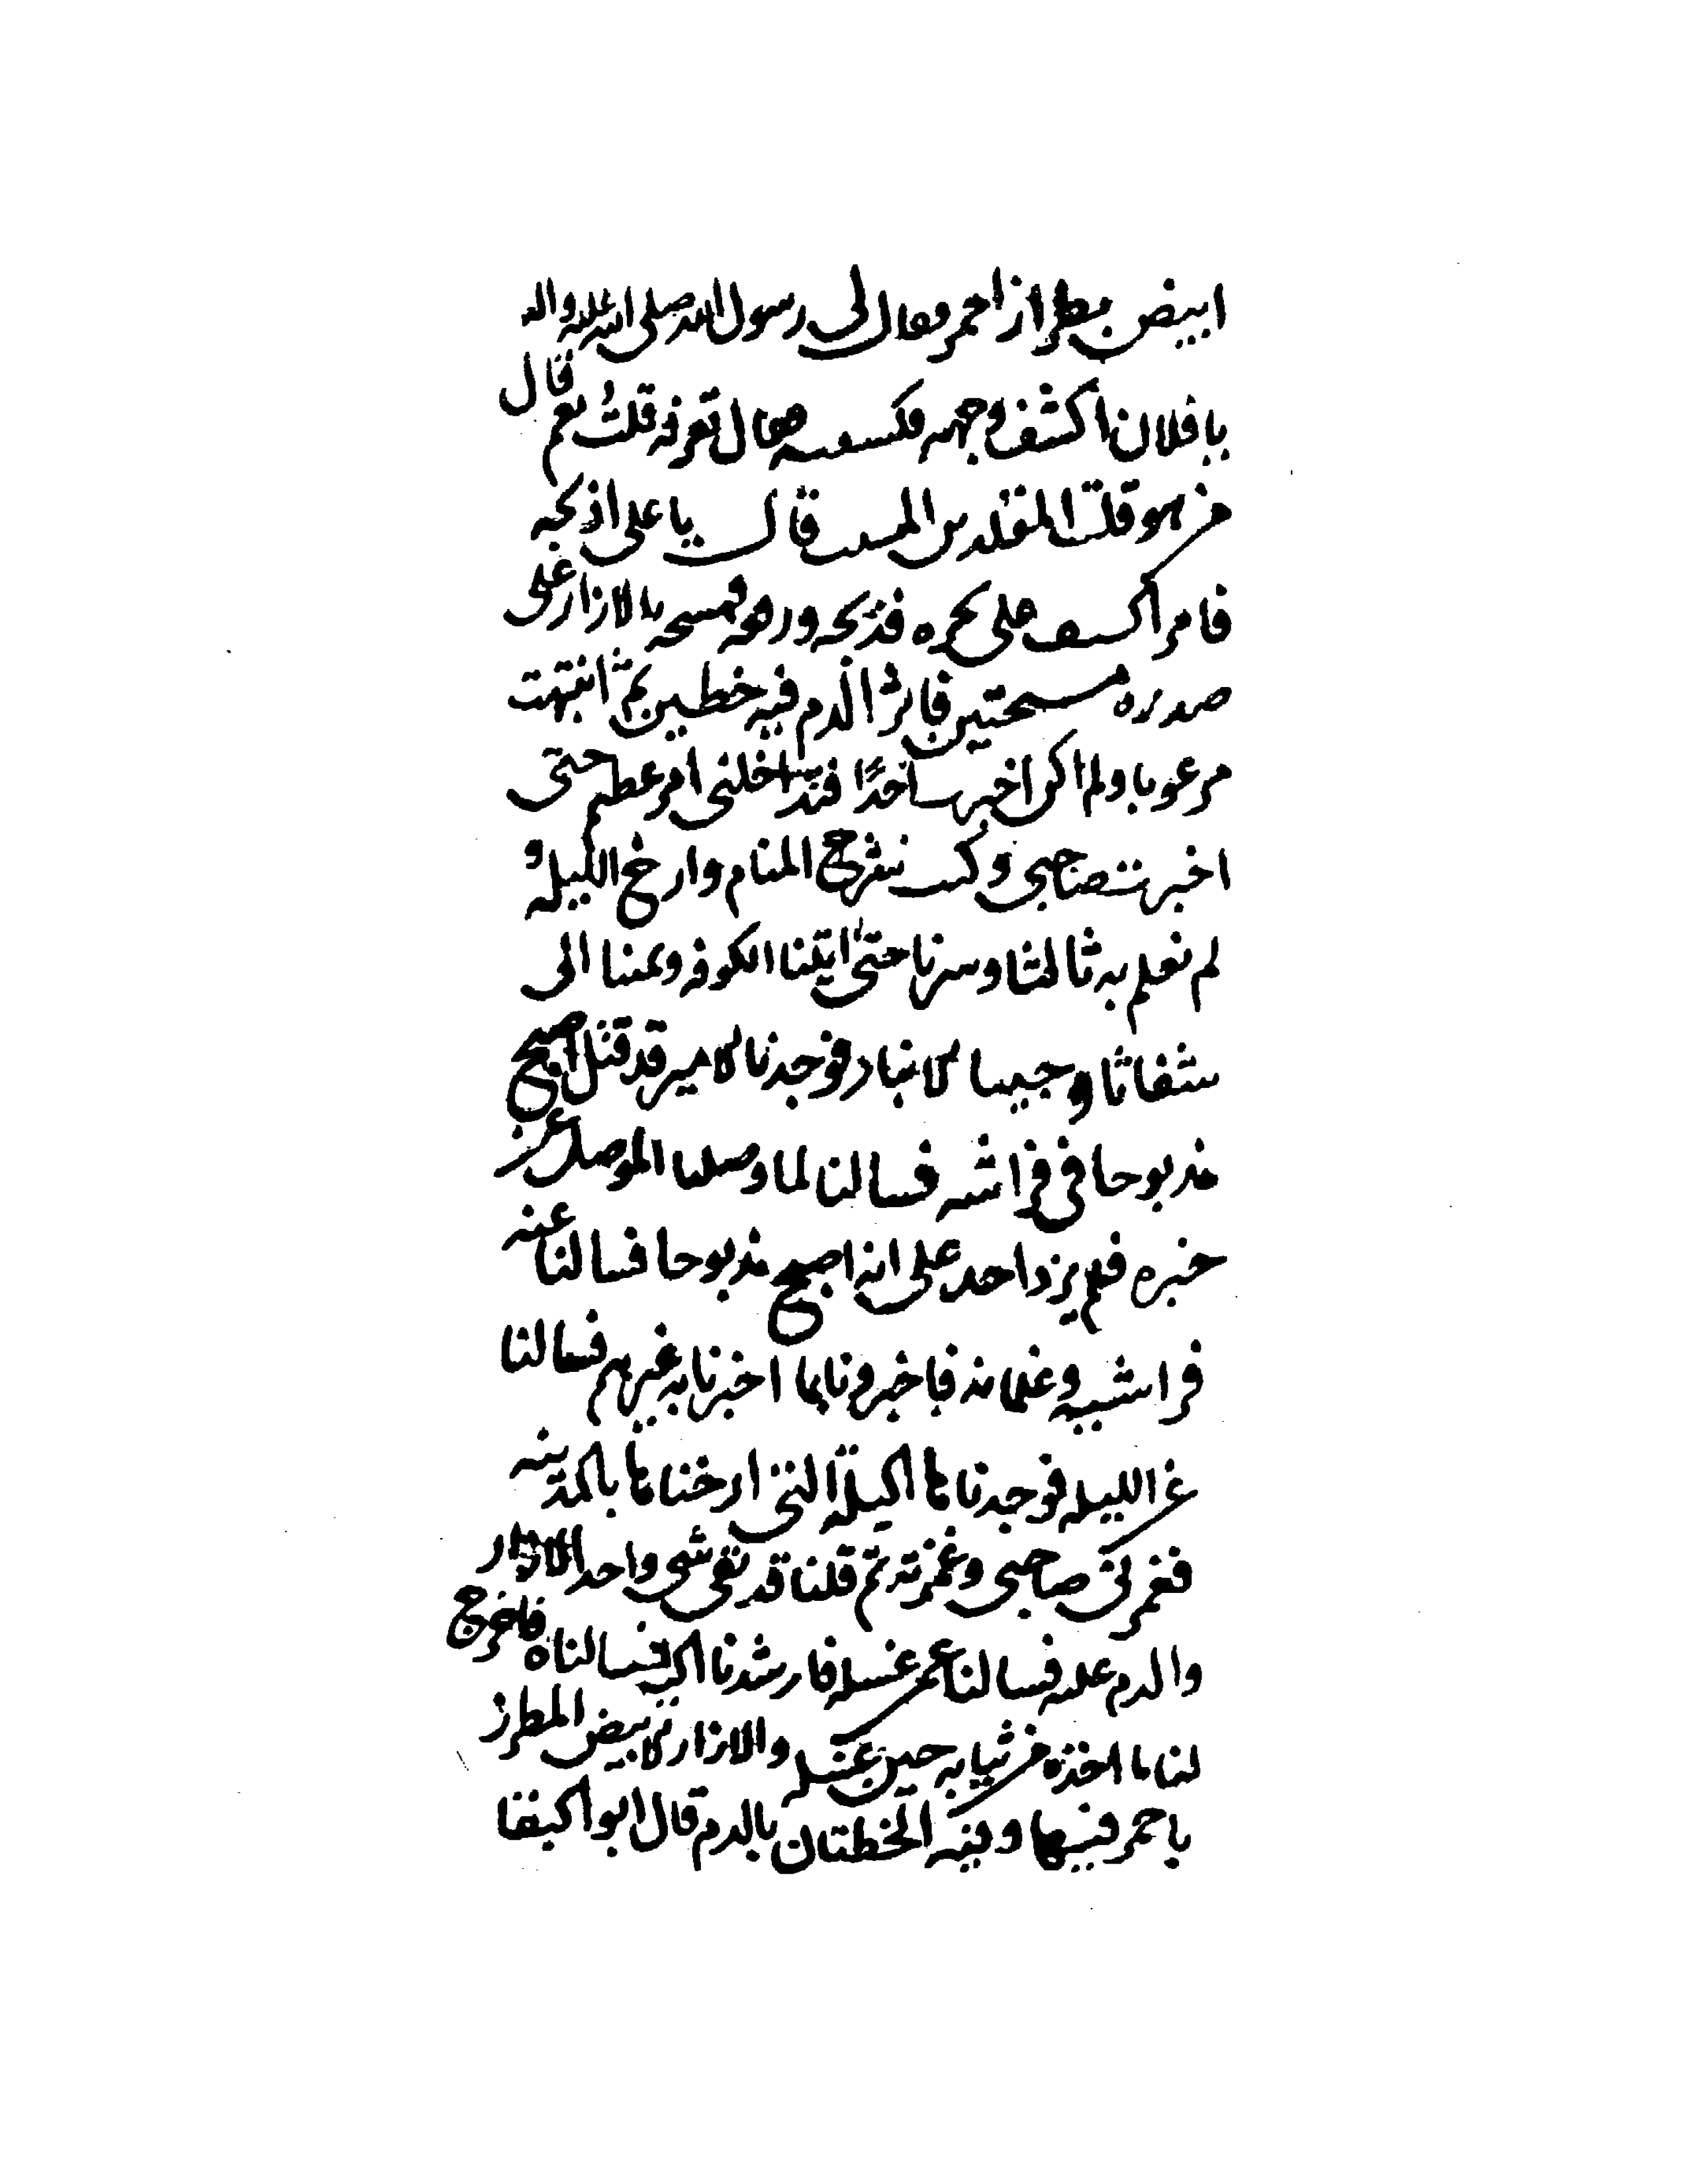 ابيض بطراز احمر فقال لي رسول الله صلى الله عليه واله
يا فلان اكشف وجهه فكشفته فقال تعرفه قلت نعم قال
من هو قلت المقلد بن المسيب قال يا علي اذبحه
فامر السيف على نحره فذبحه ورفعه فمسحه بالازار على
صدره مسحتين فاثر الدم فيه خطين ثم انتبهت
مرعوبا ولم اكن اخبرت احدا فتداخلني امر عظيم حتى
اخبرت صاحبي وكتبت شرح المنام وارخ الليلة و
لم نعلم به ثالثا وسرنا حتى اتينا الكوفة وقمنا الى
شفاثا وجينا الانبار فوجدنا الامير قد قتل اصبح
مذبوحا في فراشه فسالنا لما وصلنا الموصل عن
خبره فلم يزد احد على انه اصبح مذبوحا فسالنا عنه
فراشيه وغلمانه فاخبرونا بما اخبرنا به غيرهم فسالنا
عن الليلة فوجدناها الليلة التي ارخناها بالمدينة
فغمزني صاحبي وغمزته ثم قلنا قد بقي شي واحد الازار
والدم عليه فسالنا عمن غسله فارشدنا اليه فسالناه فاخرج
لنا ما اخذه من ثيابه حين غسله والازار الابيض المطرز
باحمر فيها وفيه الخطتان بالدم قال ابو البقا